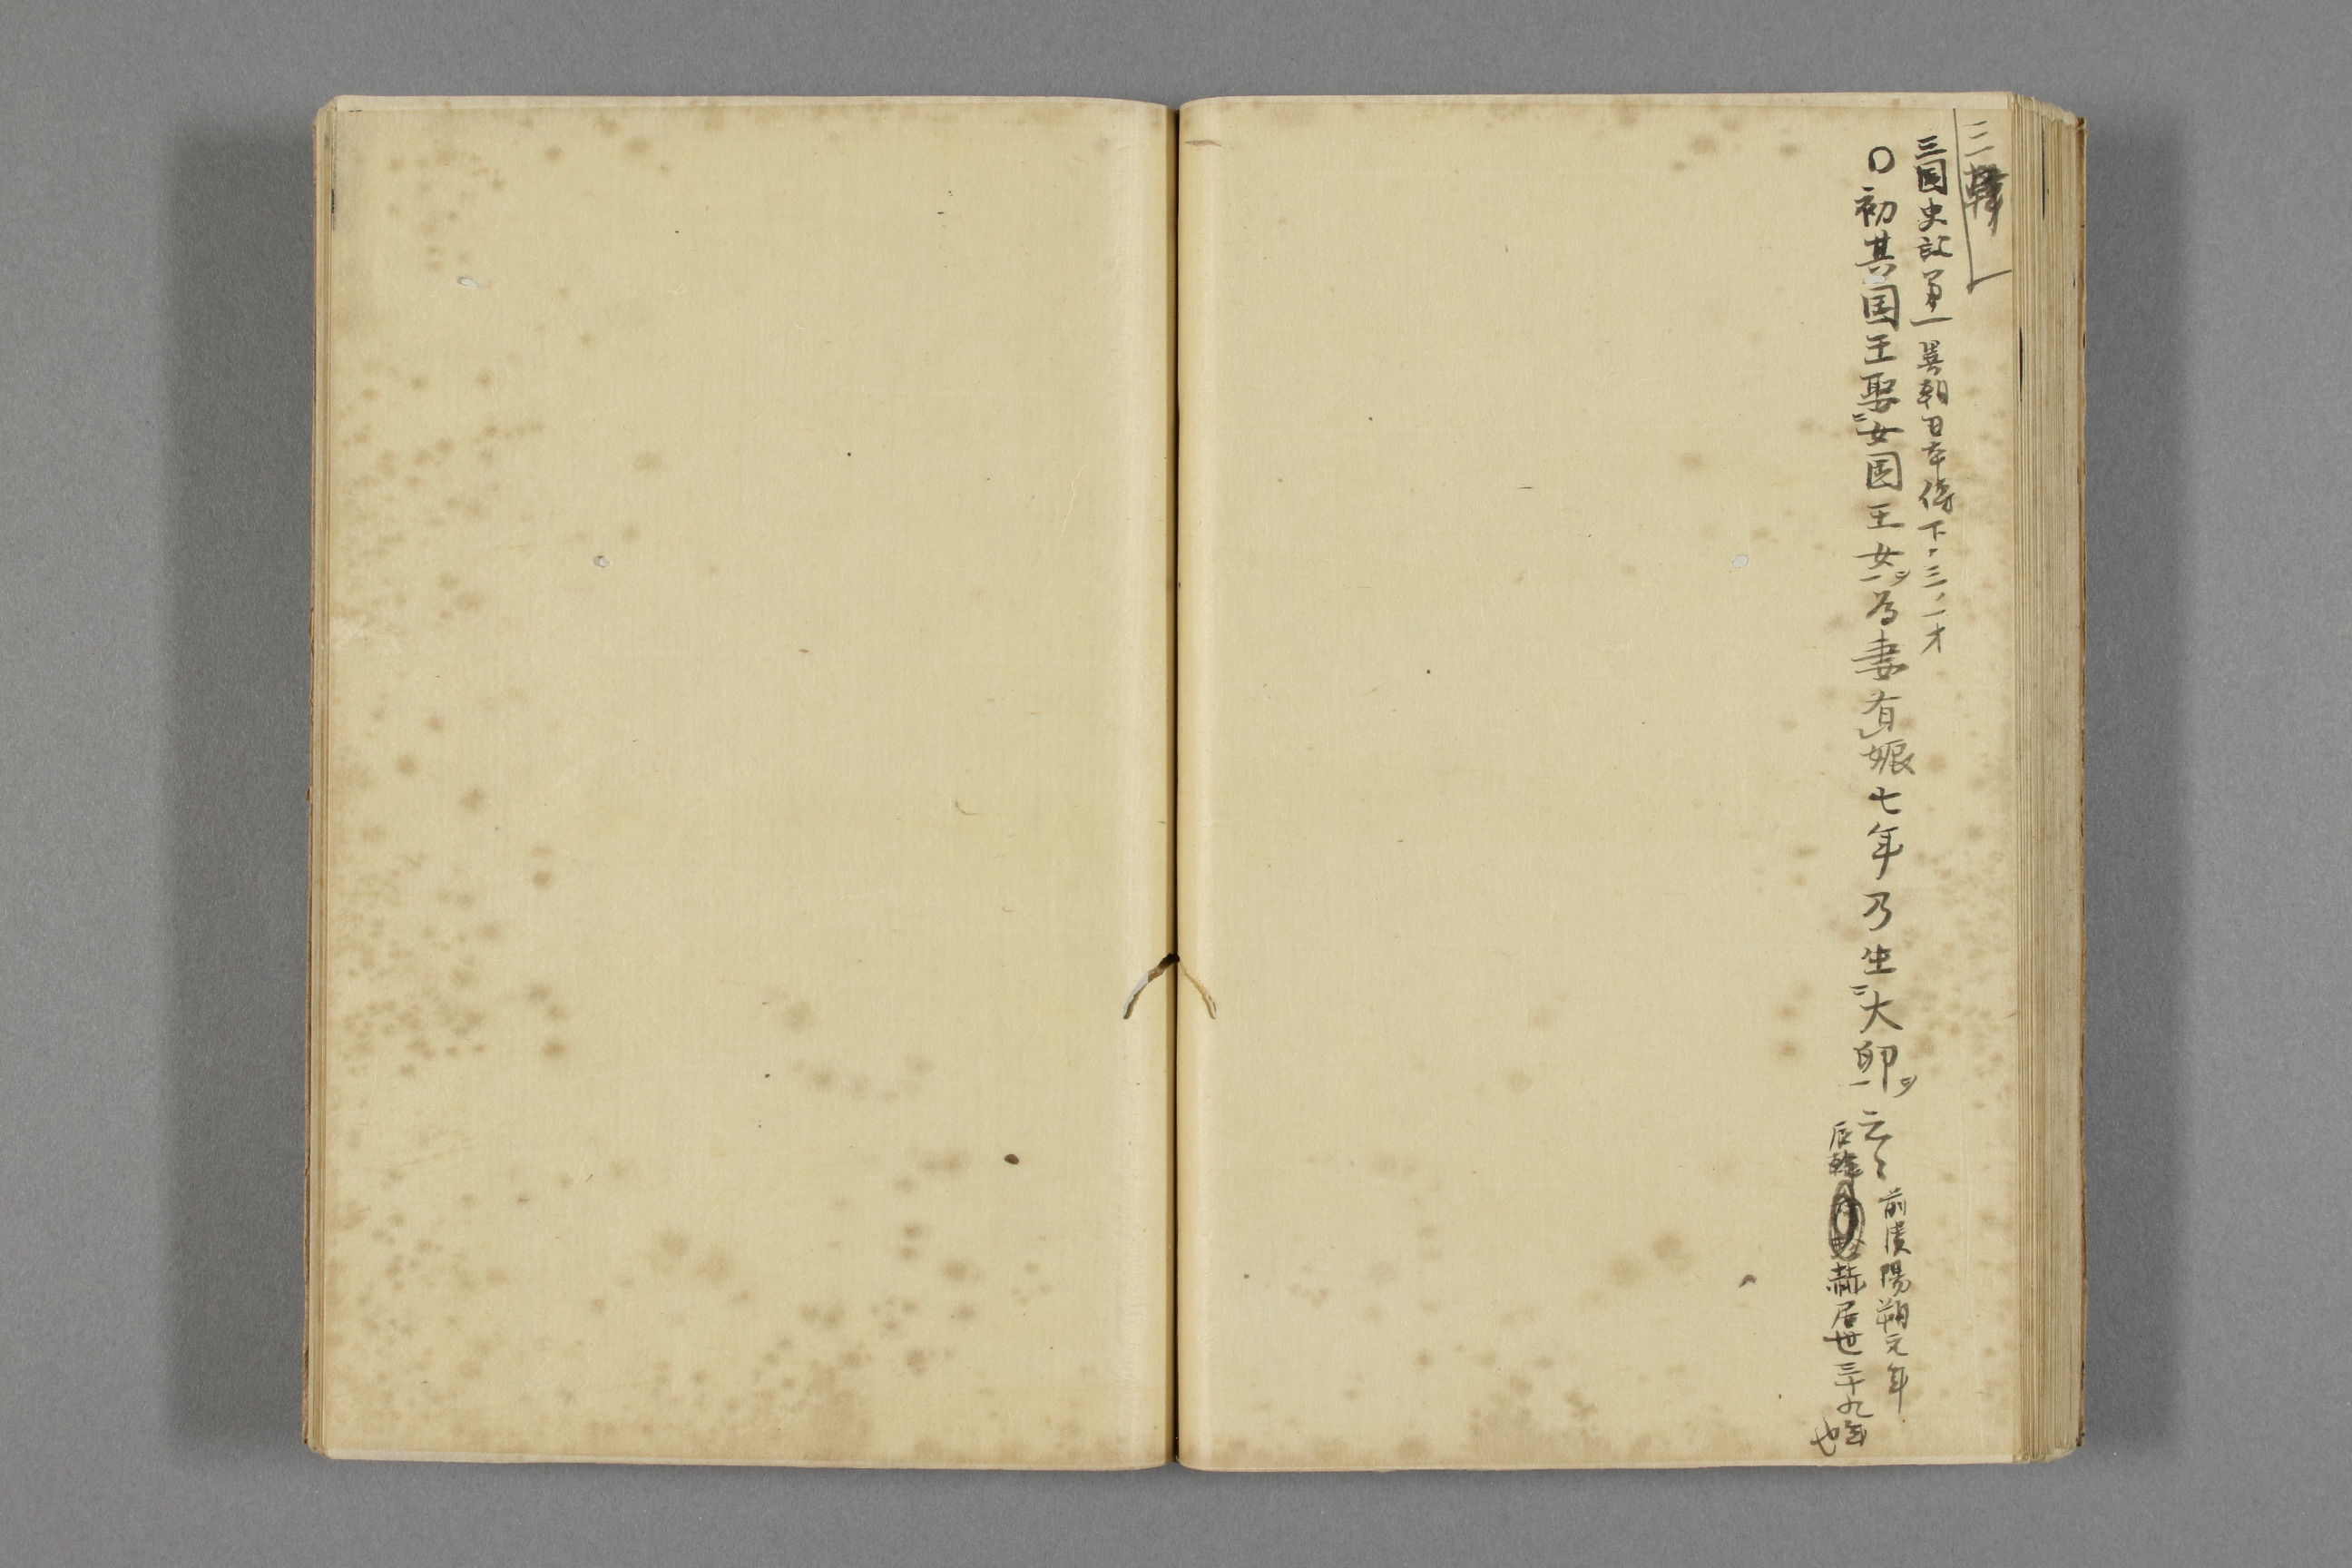 三韓
三国史記第一 異朝日本傳下、三ノ一才
〇初其国王娶二女国王女一ヲ為妻有レ娠七年乃生二大卵一ヲ云々
前漢陽朔元年
辰韓 赫居世三十九年也